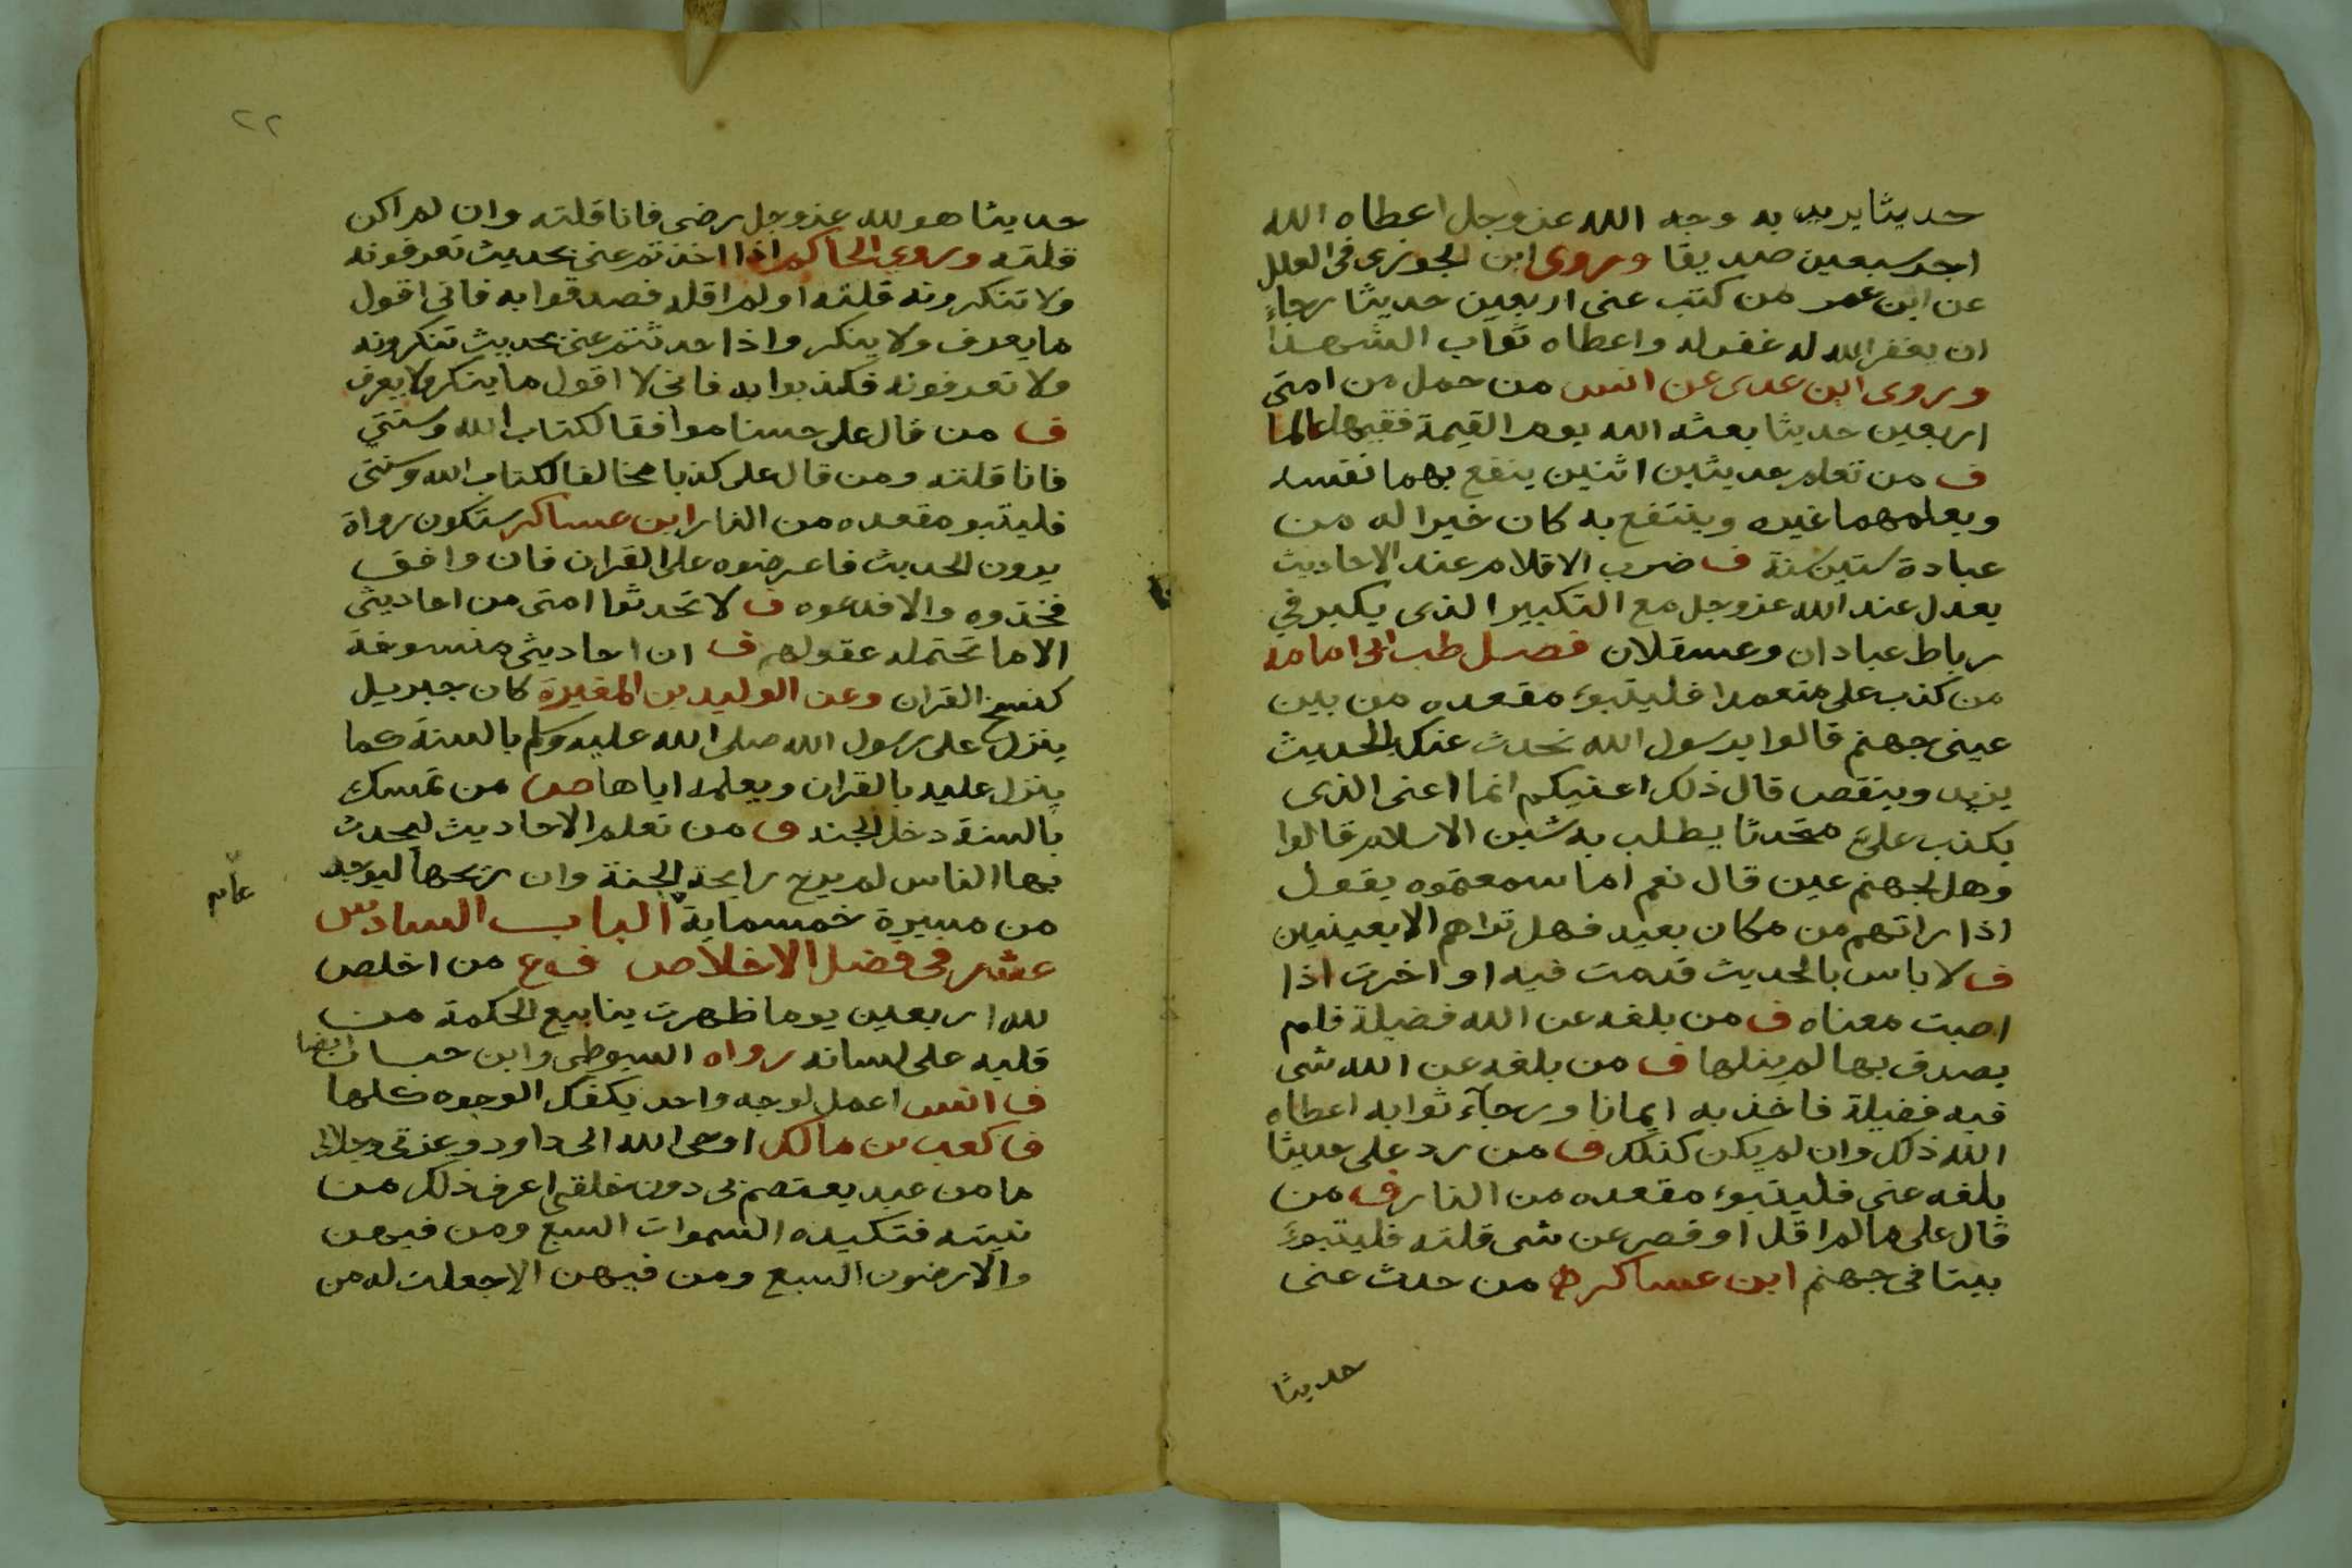 حديثا يريد به وجه الله عز وجل اعطاه الله
اجر سبعين صديقا وروى ابن الجوزى فى العلل
عن ابن عمر من كتب عنى اربعين حديثا رجاء
ان يغفر الله له غفر له واعطاه ثواب الشهدا
وروى ابن عدى عن انس من حمل من امتى
اربعين حديثا بعثه الله يوم القيمة فقيها عالما
ف من تعلم حديثين اثنين ينفع بهما نفسه
ويعلمهما غيره وينتفع به كان خيرا له من
عبادة ستين سنة ف ضرب الاقلام عند الاحاديث
يعدل عند الله عز وجل مع التكبير الذى يكبر في
رباط عبادان وعسقلان فصل طب ابى امامه
من كذب على متعمدا فليتبوء مقعده من بين
عينى جهنم قالوا يرسول الله نحدث عنك بالحديث
يزيد وينقص قال ذلك اعنيكم انما اعنى الذى
يكذب على متحدثا يطلب به شين الاسلام قالوا
وهل لجهنم عين قال نعم اما سمعتموه يقول
اذا راتهم من مكان بعيد فهل تراهم الا بعينين
ف لا باس بالحديث قدمت فيه او اخرت اذا
اصبت معناه ف من بلغه عن الله فضيلة فلم
يصدق بها لم ينلها ف من بلغه عن الله شى
فيه فضيلة فاخذ به ايمانا ورجآء ثوابه اعطاه
الله ذلك وان لم يكن كذلك ف من رد على حديثا
بلغه عنى فليتبوء مقعده من النار ف من
قال على مالم اقل او قصر عن شى قلته فليتبوء
بيتا فى جهنم ابن عساكر من حدث عنى
حديثا
٢٢
حديثا هو لله عز وجل رضى فانا قلته وان لم اكن
قلته وروى الحاكم اذا اخذتم عنى بحديث تعرفونه
ولا تنكرونه قلته او لم اقله فصدقوا به فانى اقول
ما يعرف ولا ينكر واذا حدثتم عنى بحديث تنكرونه
ولا تعرفونه فكذبوا به فانى لا اقول ما ينكر ولا يعرف
ف من قال على حسنا موافقا لكتاب الله وسنتي
فانا قلته ومن قال على كذبا مخالفا لكتاب الله وسنتى
فليتبو مقعده من النار ابن عساكر ستكون رواة
يرون الحديث فاعرضوه على القران فان وافق
فخذوه والا فدعوه ف لا تحدثوا امتى من احاديثى
الا ما تحتمله عقولهم ف ان احاديثى منسوخة
كنسخ القران وعن الوليد بن المغيرة كان جبريل
ينزل على رسول الله صلى الله عليه وسلم بالسنة كما
ينزل عليه بالقران ويعلمه اياها من تمسك
بالسنة دخل الجنه ف من تعلم الاحاديث ليحدث
بها الناس لم يرح رايحة الجنة وان ريحها ليوجد
من مسيرة خمسماية الباب السادس
عام
عشر فى فضل الاخلاص ف ع من اخلص
لله اربعين يوما ظهرت ينابيع الحكمة من
قلبه على لسانه رواه السيوطى وابن حبان ايضا
ف انس اعمل لوجه واحد يكفك الوجوه كلها
ف كعب بن مالك اوحى الله الى داود وعزتى وجلالى
ما من عبد يعتصم بى دون خلقى اعرف ذلك من
نيته فتكيده السموات السبع ومن فيهن
والارضون السبع ومن فيهن الا جعلت له من